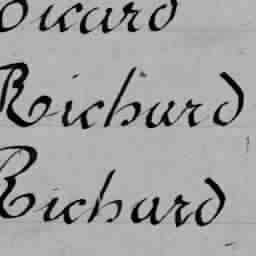 Picard
Richard
Richard